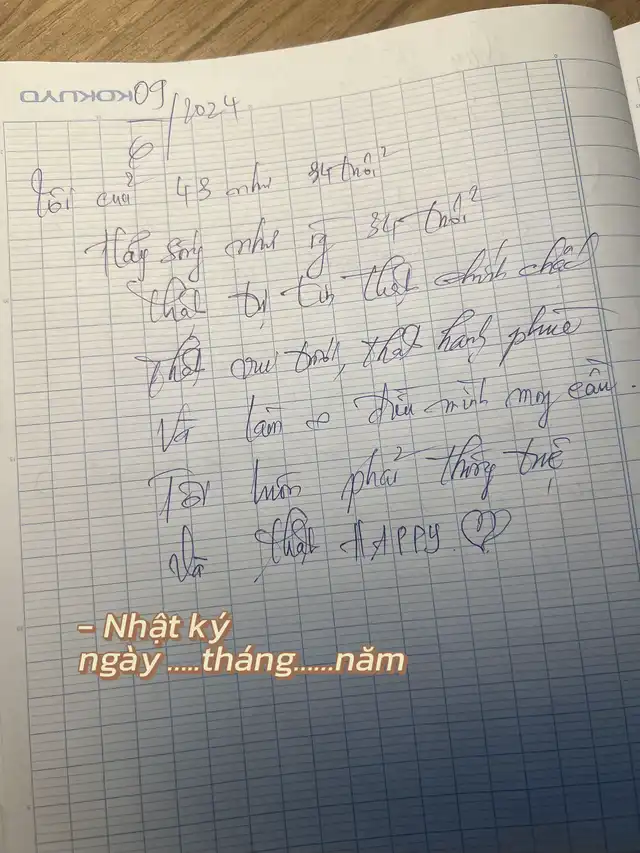 KOKUYO
09
6 / 2024
Tôi của 43 như 34 tuổi
Hãy sống như 34 tuổi
Thật tự tin thật chỉnh chu
Thật vui tươi, thật hạnh phúc
Và làm điều mình mong cầu.
Tôi luôn phải thông tuệ
Và thật HAPPY. ♡
- Nhật ký
ngày .....tháng......năm